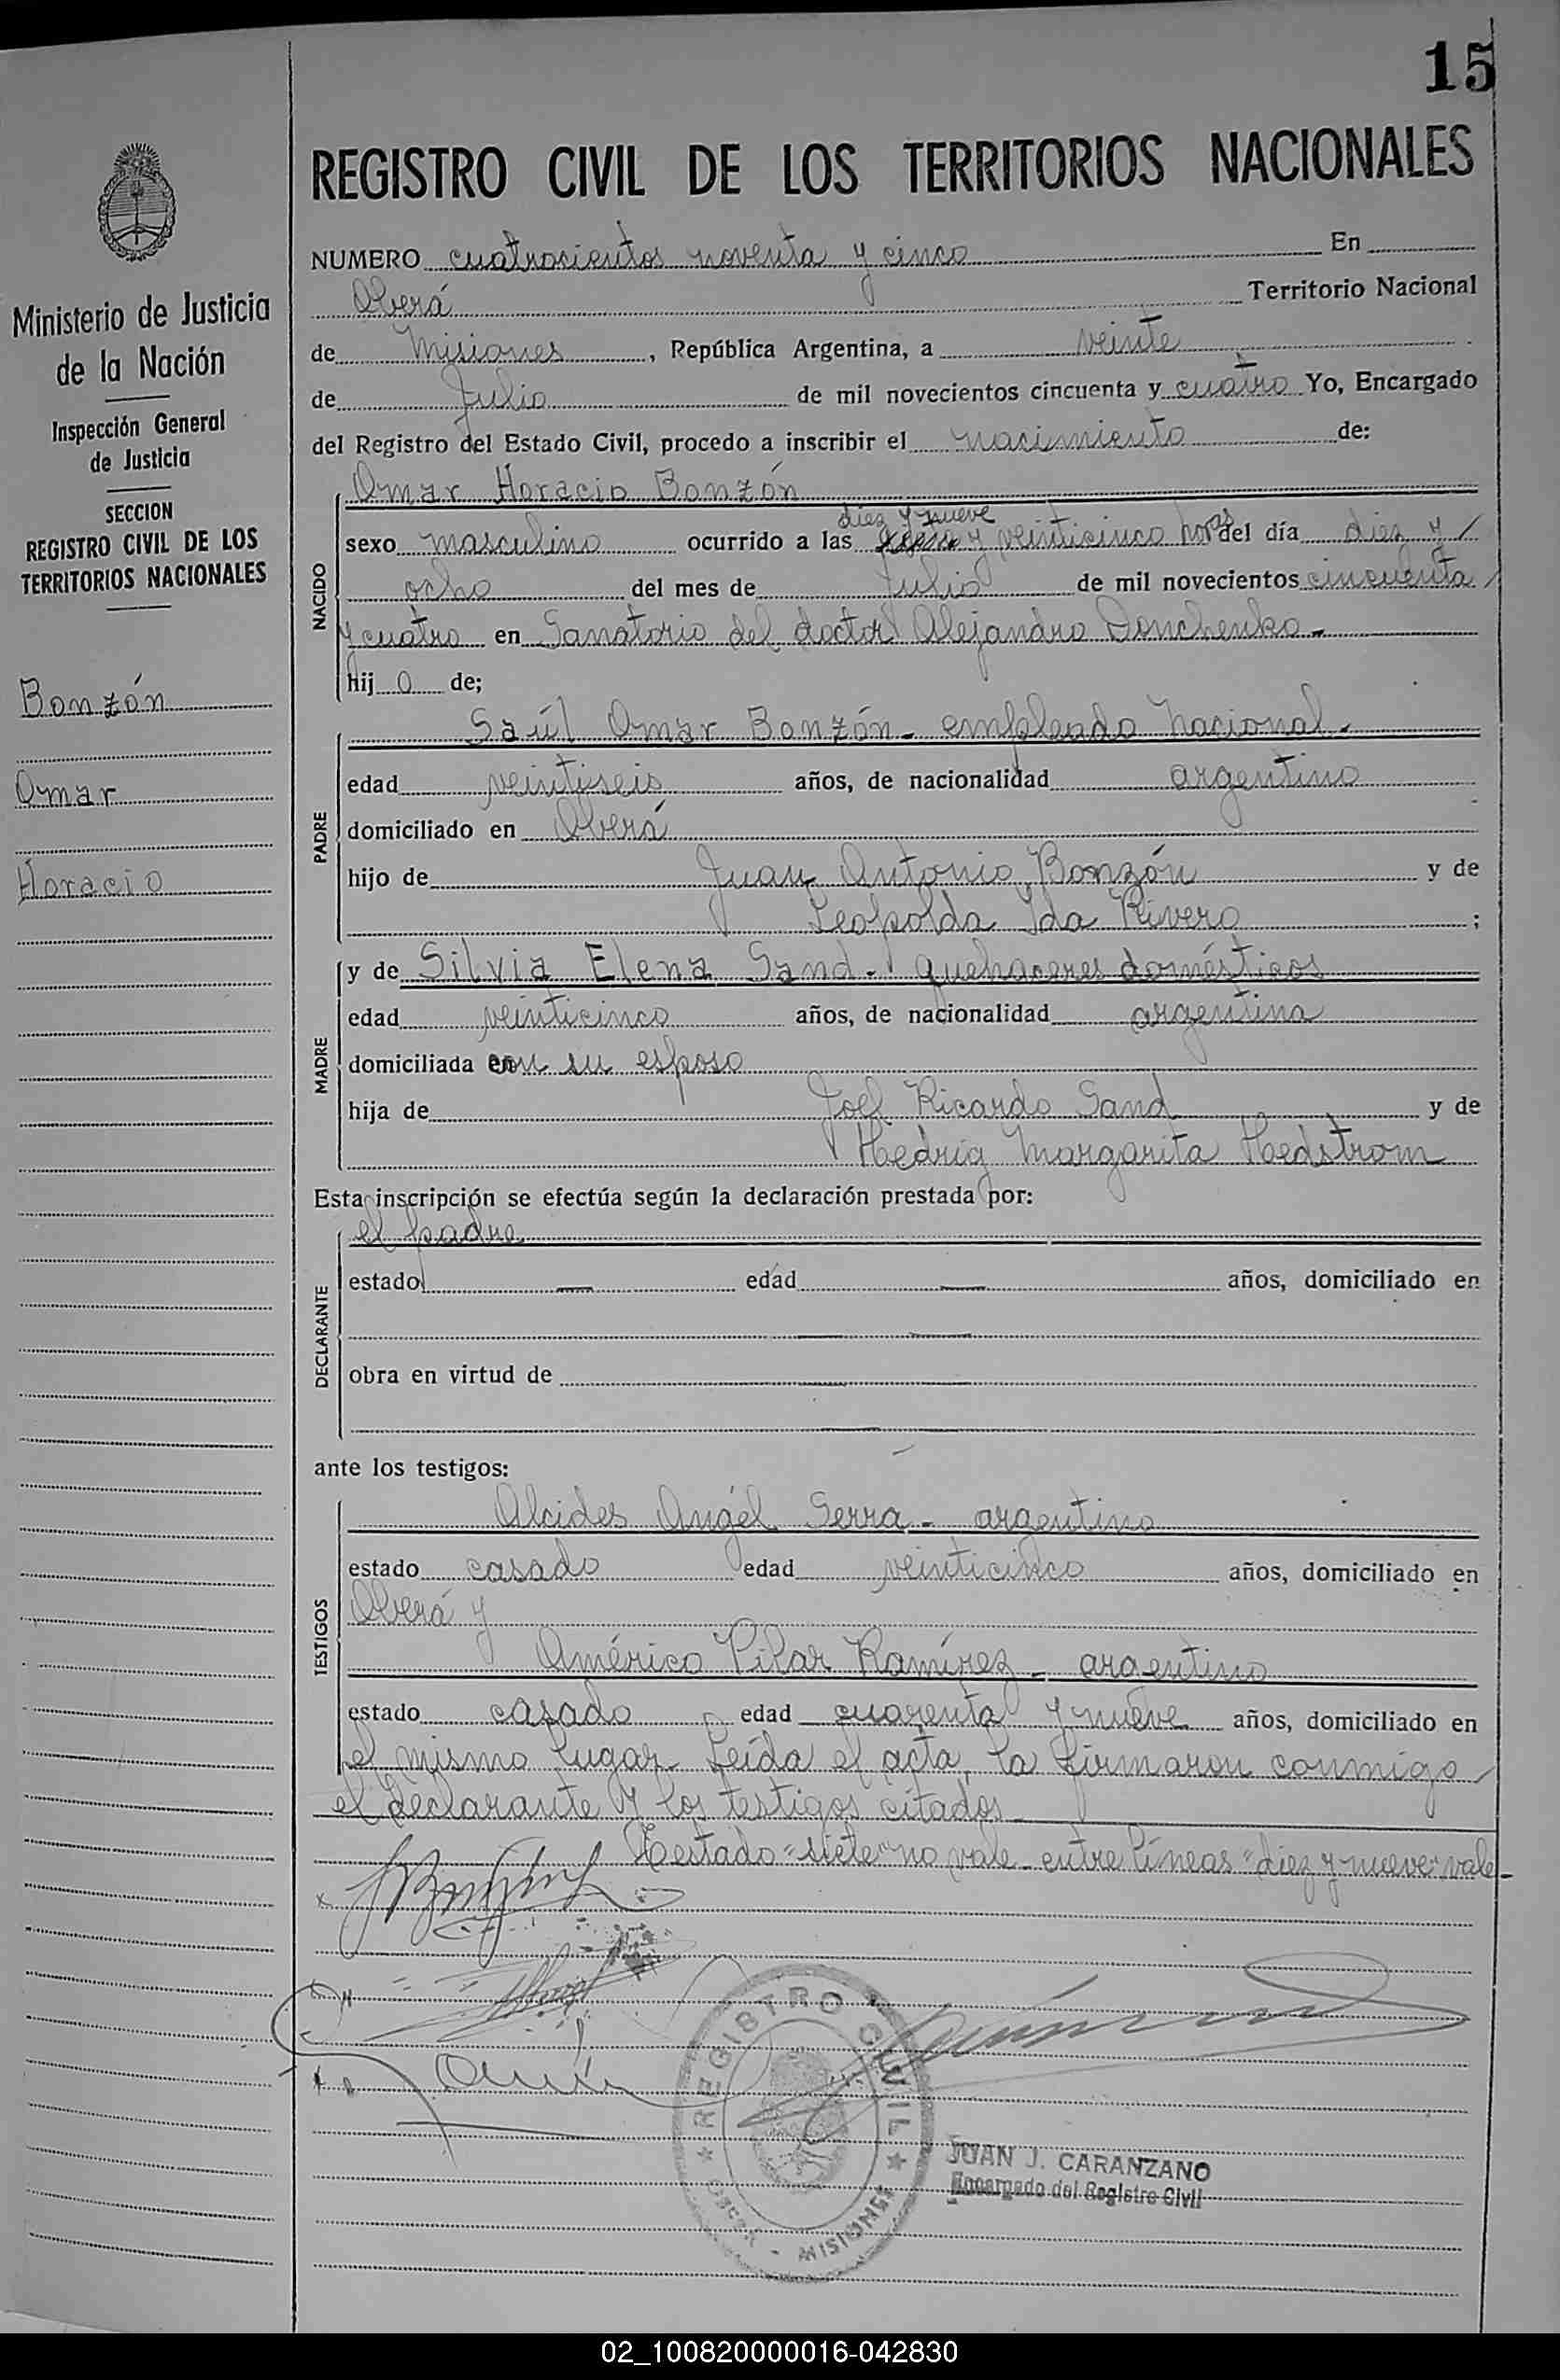 15
REGISTRO CIVIL DE LOS TERRITORIOS NACIONALES
Ministerio de Justicia
de la Nación
Inspección General
de Justicia
SECCION
REGISTRO CIVIL DE LOS
TERRITORIOS NACIONALES
Bonzón
Omar
Horacio
NUMERO cuatrocientos noventa y cinco En
Oberá Territorio Nacional
de Misiones, República Argentina, a veinte
de Julio de mil novecientos cincuenta y cuatro Yo, Encargado
del Registro del Estado Civil, procedo a inscribir el nacimiento de:
NACIDO
Omar Horacio Bonzón
diez y nueve
sexo masculino ocurrido a las y veinticinco horas del día diez y /
ocho del mes de Julio de mil novecientos cincuenta /
y cuatro en Sanatorio del doctor Alejandro Donchenko.-
hij o de;
PADRE
Saúl Omar Bonzón - empleado nacional.
edad veintiseis años, de nacionalidad argentino
domiciliado en Oberá
hijo de Juan Antonio Bonzón y de
Leopolda Ida Rivero ;
MADRE
y de Silvia Elena Sand - quehaceres domésticos
edad veinticinco años, de nacionalidad argentina
domiciliada con su esposo
hija de Joel Ricardo Sand y de
Hedrig Margarita Hedstrom
Esta inscripción se efectúa según la declaración prestada por:
DECLARANTE
el padre
estado — edad — años, domiciliado en
obra en virtud de
ante los testigos:
TESTIGOS
Alcides Angel Serra - argentino
estado casado edad veinticinco años, domiciliado en
Oberá y
Américo Pilar Ramírez - argentino
estado casado edad cuarenta y nueve años, domiciliado en
el mismo lugar. Leída el acta, la firmaron conmigo /
el declarante y los testigos citados -
Testado "siete" no vale - entre líneas "diez y nueve" vale -
REGISTRO CIVIL
OBERA - MISIONES
JUAN J. CARANZANO
Encargado del Registro Civil
02_100820000016-042830